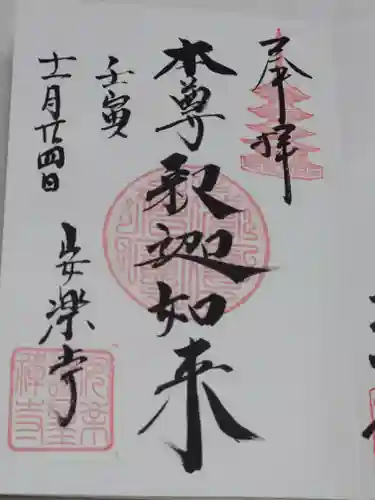 奉拝
本尊釈迦如来
壬寅
十一月廿四日
安樂寺